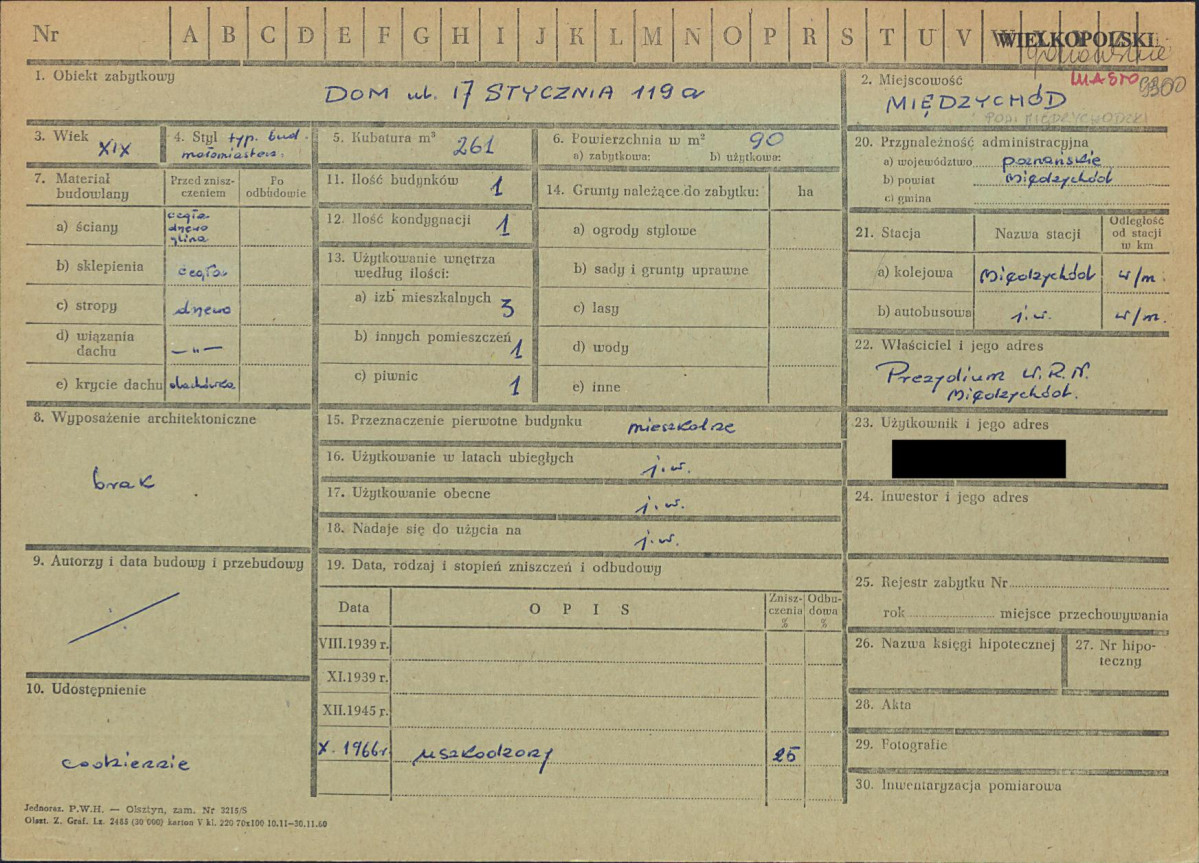 Nr A B C D E F G H I J K L M N O P R S T U V W WIELKOPOLSKI
gorzowskie
1. Obiekt zabytkowy
DOM ul. 17 STYCZNIA 119a
2. Miejscowość MIASTO 9300
MIĘDZYCHÓD
POW. MIĘDZYCHODZKI
3. Wiek XIX
4. Styl typ. bud. małomiastecz.
5. Kubatura m³ 261
6. Powierzchnia w m² 90
a) zabytkowa: b) użytkowa:
7. Materiał budowlany
Przed zniszczeniem
Po odbudowie
a) ściany cegła drewo glina
b) sklepienia cegła
c) stropy drewo
d) wiązania dachu —„—
e) krycie dachu dachówka
8. Wyposażenie architektoniczne
brak
9. Autorzy i data budowy i przebudowy
10. Udostępnienie
codziennie
11. Ilość budynków 1
12. Ilość kondygnacji 1
13. Użytkowanie wnętrza według ilości:
a) izb mieszkalnych 3
b) innych pomieszczeń 1
c) piwnic 1
14. Grunty należące do zabytku: ha
a) ogrody stylowe
b) sady i grunty uprawne
c) lasy
d) wody
e) inne
15. Przeznaczenie pierwotne budynku mieszkalne
16. Użytkowanie w latach ubiegłych j.w.
17. Użytkowanie obecne j.w.
18. Nadaje się do użycia na j.w.
19. Data, rodzaj i stopień zniszczeń i odbudowy
Data OPIS Zniszczenia % Odbudowa %
VIII.1939 r.
XI.1939 r.
XII.1945 r.
X. 1966r. uszkodzony 25
20. Przynależność administracyjna
a) województwo poznańskie
b) powiat Międzychód
c) gmina
21. Stacja Nazwa stacji Odległość od stacji w km
a) kolejowa Międzychód w/m.
b) autobusowa j.w. w/m.
22. Właściciel i jego adres
Prezydium W.R.N.
Międzychód.
23. Użytkownik i jego adres
24. Inwestor i jego adres
25. Rejestr zabytku Nr
rok miejsce przechowywania
26. Nazwa księgi hipotecznej
27. Nr hipoteczny
28. Akta
29. Fotografie
30. Inwentaryzacja pomiarowa
Jednoraz. P.W.H. — Olsztyn, zam. Nr 3215/S
Olszt. Z. Graf. Lz. 2488 (30 000) karton V kl. 220 70x100 10.11—30.11.60